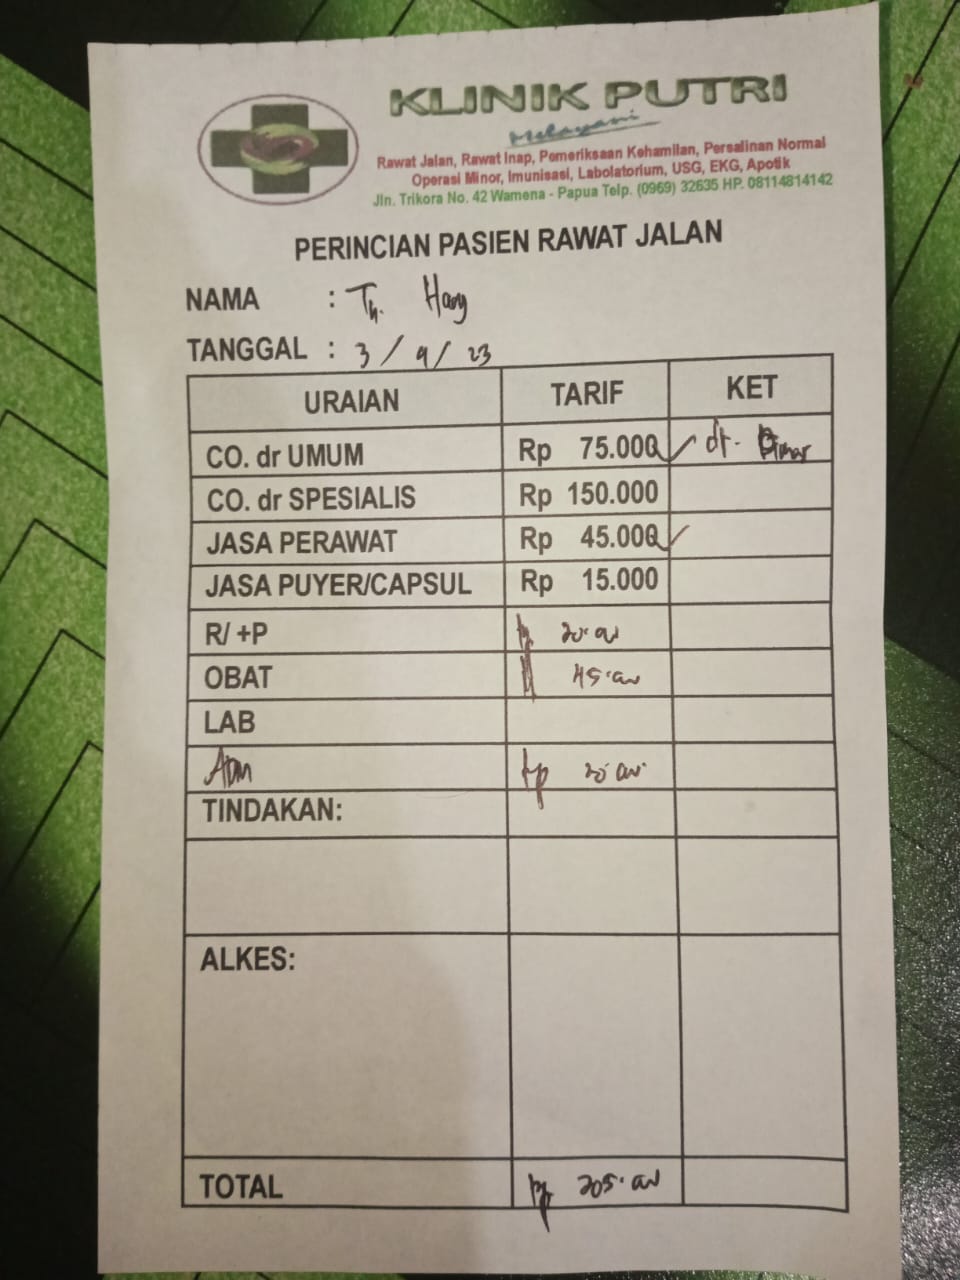 KLINIK PUTRI
Melayani
Rawat Jalan, Rawat Inap, Pemeriksaan Kehamilan, Persalinan Normal
Operasi Minor, Imunisasi, Labolatorium, USG, EKG, Apotik
Jln. Trikora No. 42 Wamena - Papua Telp. (0969) 32635 HP. 08114814142
PERINCIAN PASIEN RAWAT JALAN
NAMA : Tn.
TANGGAL : 3 / 9 / 23
URAIAN TARIF KET
CO. dr UMUM Rp 75.000 ✓ dr.
CO. dr SPESIALIS Rp 150.000
JASA PERAWAT Rp 45.000 ✓
JASA PUYER/CAPSUL Rp 15.000
R/ +P Rp 20.000
OBAT 45.000
LAB
ADM Rp 20.000
TINDAKAN:
ALKES:
TOTAL Rp 205.000